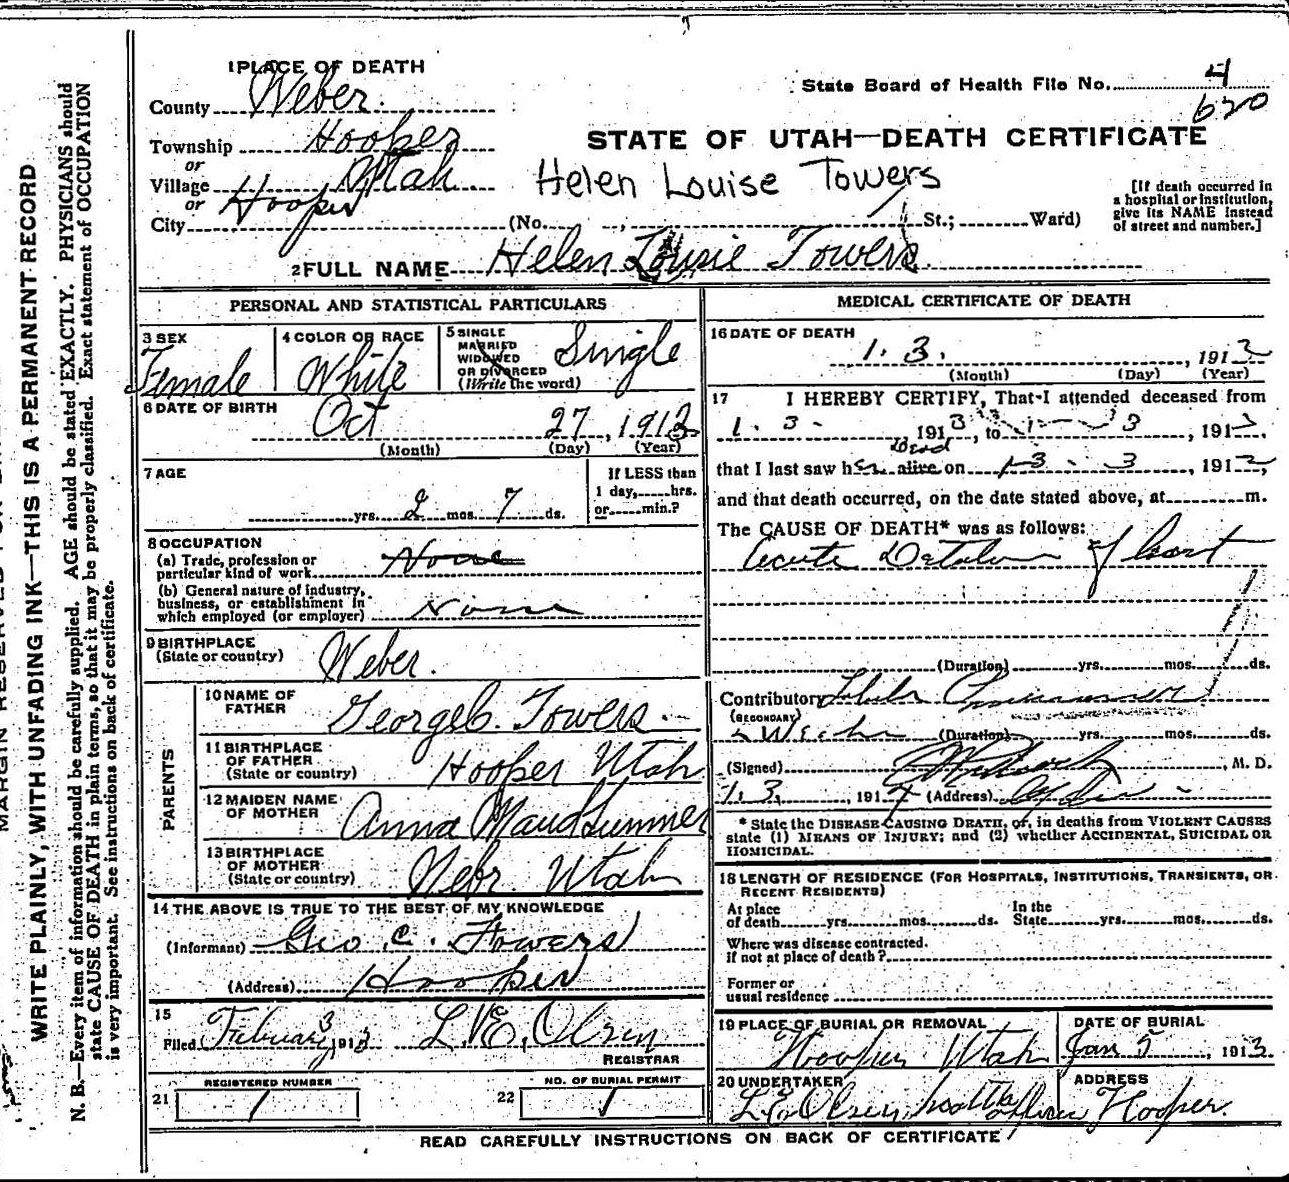 1 PLACE OF DEATH
County Weber.
Township Hooper
or
Village Utah
or
City Hooper
State Board of Health File No. 4
620
STATE OF UTAH—DEATH CERTIFICATE
Helen Louise Towers
(No. , St.; Ward)
[If death occurred in
a hospital or institution,
give its NAME instead
of street and number.]
2 FULL NAME Helen Lousie Towers.
PERSONAL AND STATISTICAL PARTICULARS
3 SEX
Female
4 COLOR OR RACE
White
5 SINGLE
MARRIED
WIDOWED
OR DIVORCED
(Write the word)
Single
6 DATE OF BIRTH
Oct 27, 1913
(Month) (Day) (Year)
7 AGE
yrs. 2 mos. 7 ds.
If LESS than
1 day, hrs.
or min.?
8 OCCUPATION
(a) Trade, profession or
particular kind of work None
(b) General nature of industry,
business, or establishment in
which employed (or employer) None
9 BIRTHPLACE
(State or country) Weber.
PARENTS
10 NAME OF
FATHER George C. Towers.
11 BIRTHPLACE
OF FATHER
(State or country) Hooper Utah
12 MAIDEN NAME
OF MOTHER Anna Maud Summer
13 BIRTHPLACE
OF MOTHER
(State or country) Utah
14 THE ABOVE IS TRUE TO THE BEST OF MY KNOWLEDGE
(Informant) Geo C. Towers
(Address) Hooper
15
Filed February 3, 1913 L. E. Olsen
REGISTRAR
REGISTERED NUMBER
21 1
NO. OF BURIAL PERMIT
22 1
MEDICAL CERTIFICATE OF DEATH
16 DATE OF DEATH
1. 3. , 1913
(Month) (Day) (Year)
17 I HEREBY CERTIFY, That I attended deceased from
1. 3. 1913, to 3, 191
Dead
that I last saw her alive on 1-3 - 3, 191
and that death occurred, on the date stated above, at m.
The CAUSE OF DEATH* was as follows:
Acute of heart
(Duration) yrs. mos. ds.
Contributory
(SECONDARY)
(Duration) yrs. mos. ds.
(Signed) , M. D.
1. 3. , 191 (Address) Ogden
* State the DISEASE CAUSING DEATH, or, in deaths from VIOLENT CAUSES
state (1) MEANS OF INJURY; and (2) whether ACCIDENTAL, SUICIDAL OR
HOMICIDAL.
18 LENGTH OF RESIDENCE (FOR HOSPITALS, INSTITUTIONS, TRANSIENTS, OR
RECENT RESIDENTS)
At place
of death yrs. mos. ds.
In the
State yrs. mos. ds.
Where was disease contracted.
if not at place of death?
Former or
usual residence
19 PLACE OF BURIAL OR REMOVAL
Hooper Utah
DATE OF BURIAL
Jan 5, 1913.
20 UNDERTAKER
L. E. Olsen
ADDRESS
Hooper.
READ CAREFULLY INSTRUCTIONS ON BACK OF CERTIFICATE
WRITE PLAINLY, WITH UNFADING INK—THIS IS A PERMANENT RECORD
N. B.—Every item of information should be carefully supplied. AGE should be stated EXACTLY. PHYSICIANS should
state CAUSE OF DEATH in plain terms, so that it may be properly classified. Exact statement of OCCUPATION
is very important. See instructions on back of certificate.